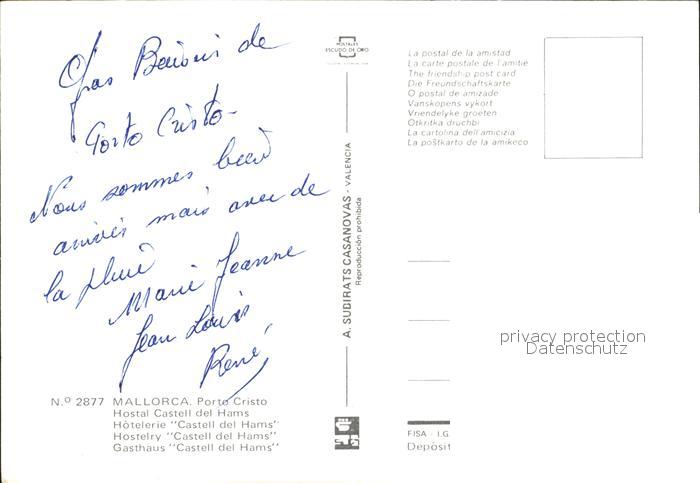 Gros Baisers de
Porto Cristo-
Nous sommes bien
arrivés mais avec de
la pluie
Marie Jeanne
Jean Louis
René
N.º 2877 MALLORCA. Porto Cristo
Hostal Castell del Hams
Hôtelerie "Castell del Hams"
Hostelry "Castell del Hams"
Gasthaus "Castell del Hams"
POSTALES
ESCUDO DE ORO
A. SUBIRATS CASANOVAS - VALENCIA
Reproducción prohibida
La postal de la amistad
La carte postale de l'amitié
The friendship post card
Die Freundschaftskarte
O postal de amizade
Vanskopens vykort
Vriendelyke groeten
Otkritka druchbi
La cartolina dell'amicizia
La poŝtkarto de la amikeco
privacy protection
Datenschutz
FISA - I.G.
Depósit